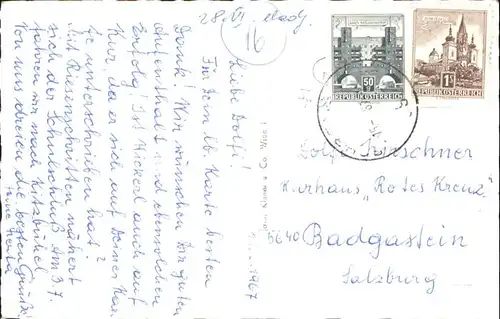 28. VI.
16
Liebe Dolfi!
Für Deine lb. Karte besten
Dank! Wir wünschen Dir guten
Aufenthalt und ebensolchen
Erfolg! Ist Micherl auch auf
Kur, da er sich auf Deiner Kar-
te unterschrieben hat?
Mit Riesenschritten nähert
sich der Schulschluß. Am 3.7.
fahren wir nach Kitzbühel
Von uns dreien die besten Grüße
Deine Herta
50
REPUBLIK ÖSTERREICH
1S
REPUBLIK ÖSTERREICH
Dolfi Hirschner
Kurhaus „Rotes Kreuz"
5640 Badgastein
Salzburg
1967